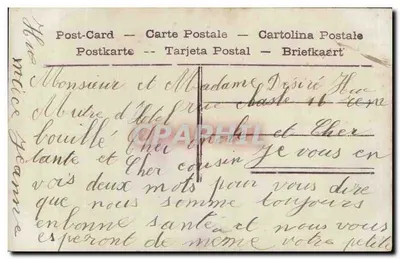 Post-Card — Carte Postale — Cartolina Postale
Postkarte -- Tarjeta Postal — Briefkaért
Monsieur et Madame Désiré Hue
Mutre d'Hotel rue
bouillé Cher oncle et Cher
tante et Cher cousin je vous en
vois deux mots pour vous dire
que nous somme toujours
en bonne santé et nous vous
esperont de même votre petite
Hue
nièce Jeanne
CPARAMA